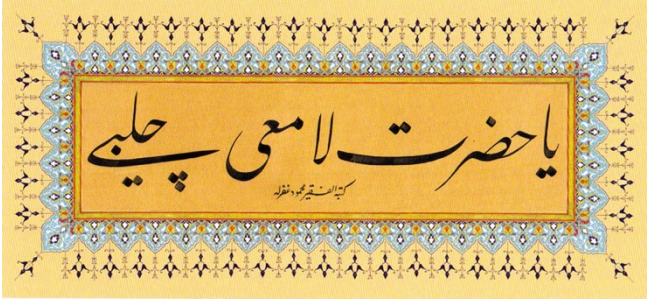 یا حضرت لامعی چلبی
كتبه الفقير محمود غفرله